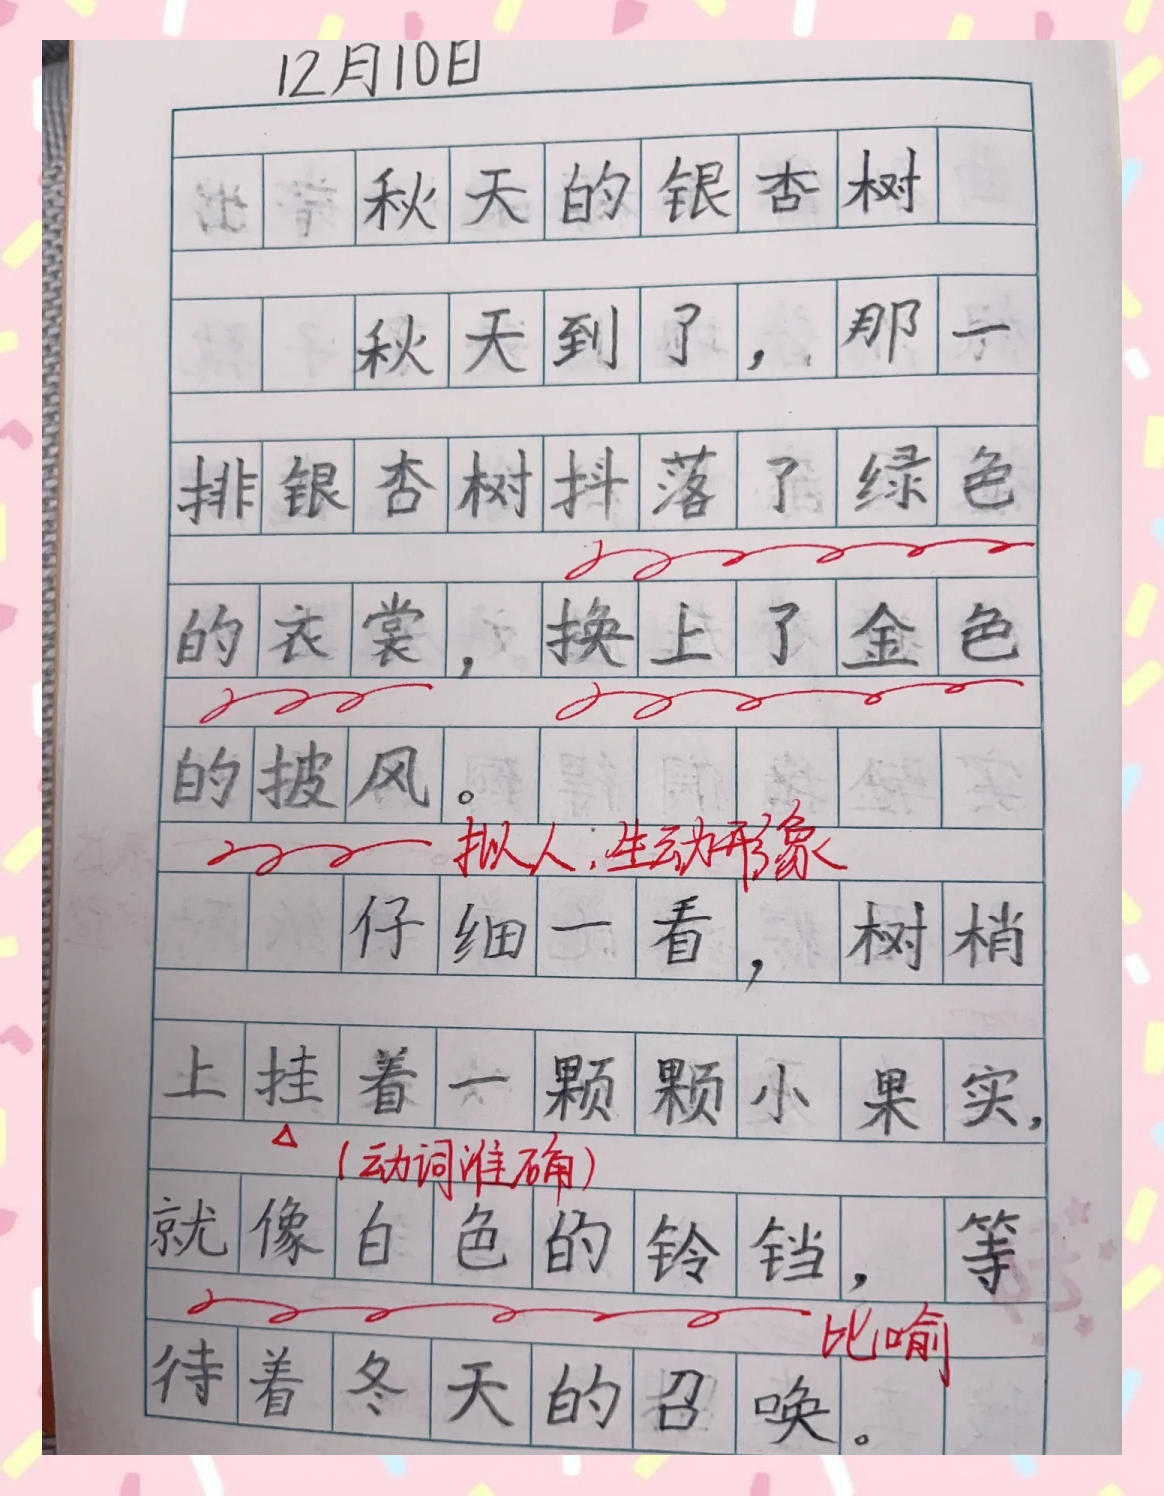 12月10日
秋天的银杏树
秋天到了，那一
排银杏树抖落了绿色
的衣裳，换上了金色
的披风。
拟人.生动形象
仔细一看，树梢
上挂着一颗颗小果实，
(动词准确)
就像白色的铃铛，等
比喻
待着冬天的召唤。